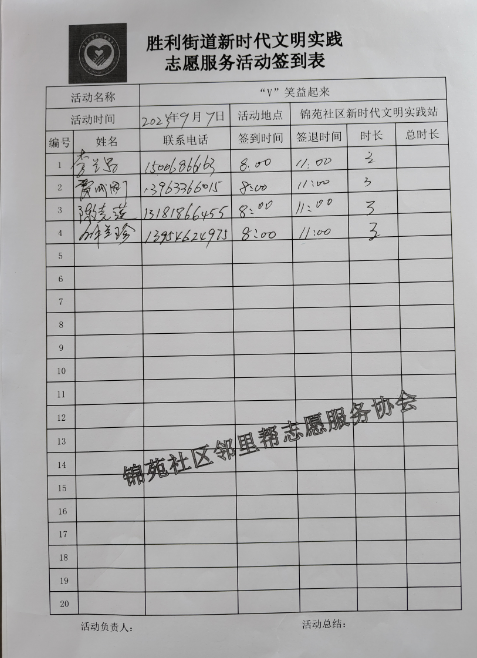 胜利街道新时代文明实践
志愿服务活动签到表
活动名称 “V”笑益起来
活动时间 2024年9月7日 活动地点 锦苑社区新时代文明实践站
编号 姓名 联系电话 签到时间 签退时间 时长 总时长
1 8:00 11:00 3
2 13963366015 8:00 11:00 3
3 13181866455 8:00 11:00 3
4 13954624975 8:00 11:00 3
5
6
7
8
9
10
11
12
13
14
15
16
17
18
19
20
锦苑社区邻里帮志愿服务协会
活动负责人: 活动总结: